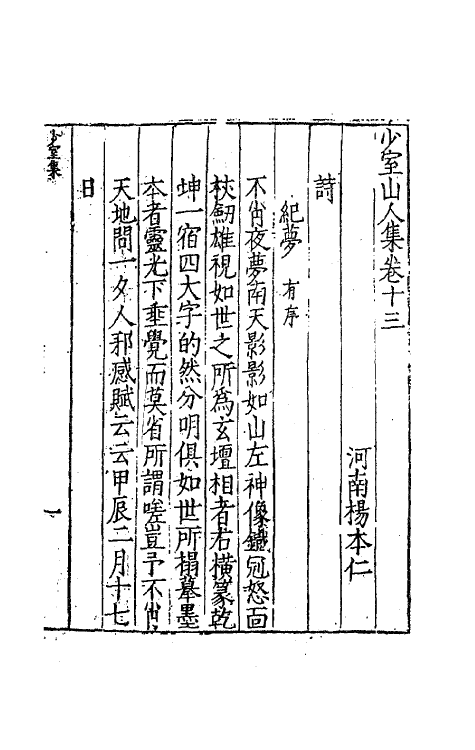 少室山人集卷十三
河南楊本仁
詩
紀夢 有序
不肖夜夢南天影影如山左神像鐵冠怒面
杖劒雄視如世之所為玄壇相者右横篆乾
坤一宿四大字的然分明俱如世所榻摹墨
本者靈光下垂覺而莫省所謂嗟豈予不肖
天地間一夕人邪感賦云云甲辰二月十七
日
少室集
一